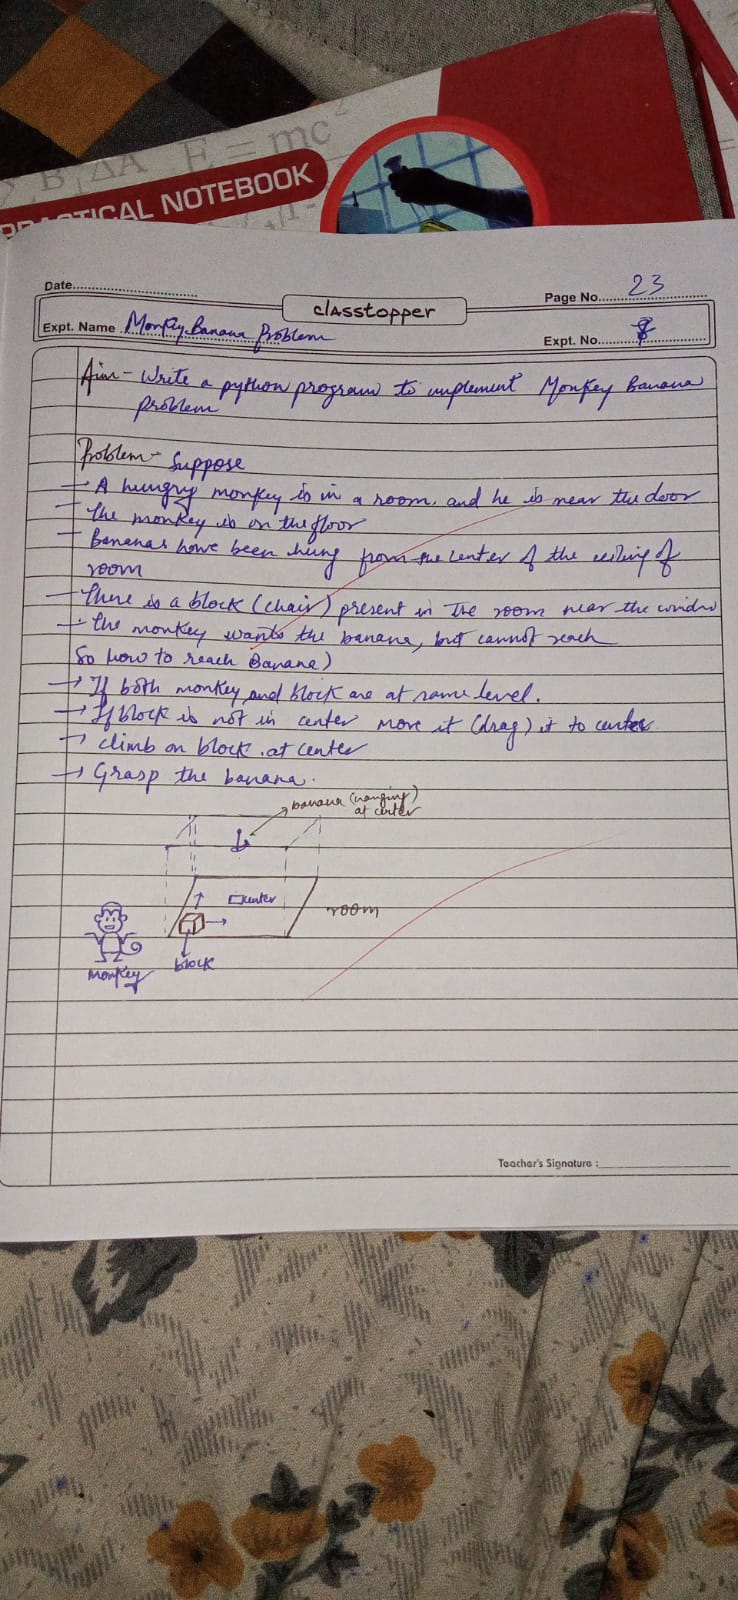 E = mc²
B ΔA
PRACTICAL NOTEBOOK
Date
classtopper
Page No. 23
Expt. Name Monkey Banana Problem
Expt. No. 8
Aim - Write a python program to implement Monkey Banana
problem
Problem - Suppose
- A hungry monkey is in a room. and he is near the door
- The monkey is on the floor
- Bananas have been hung from the center of the ceiling of
room
- There is a block (chair) present in the room near the window
- The monkey wants the banana, but cannot reach
So how to reach Banana)
→ If both monkey and block are at same level.
→ If block is not in center move it (drag) it to center
→ climb on block at center
→ Grasp the banana.
banana (hanging)
at center
center
room
Monkey
block
Teacher's Signature :